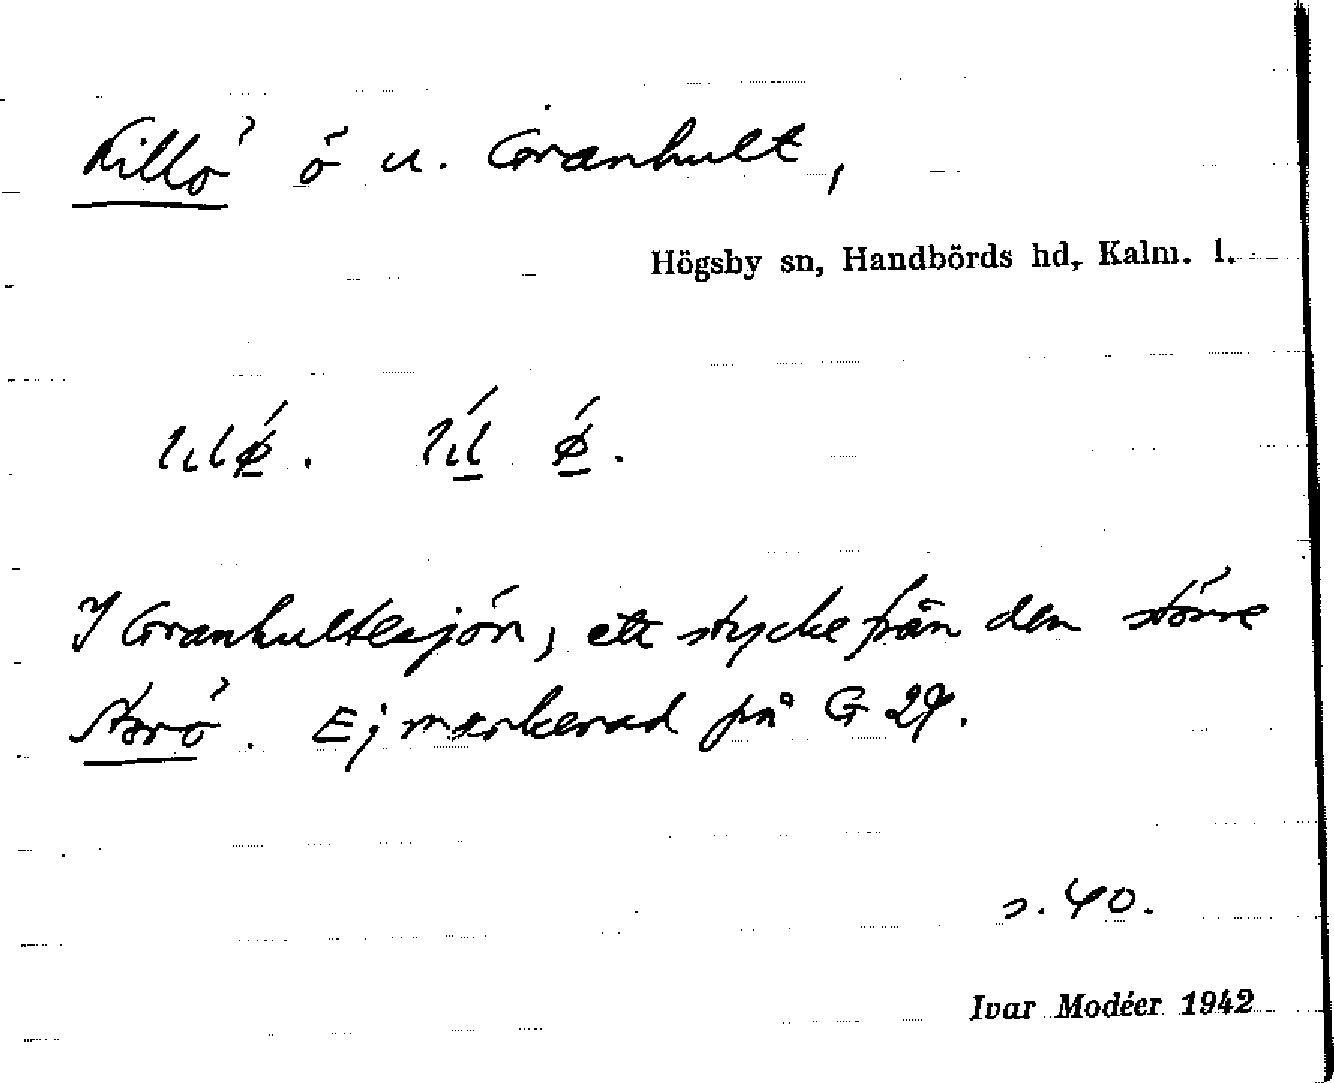 Lillö ö u. Granhult,
Högsby sn, Handbörds hd, Kalm. l.
I Granhultesjön, ett stycke från den större
Storö. Ej markerad på G 29.
s. 40.
Ivar Modéer 1942